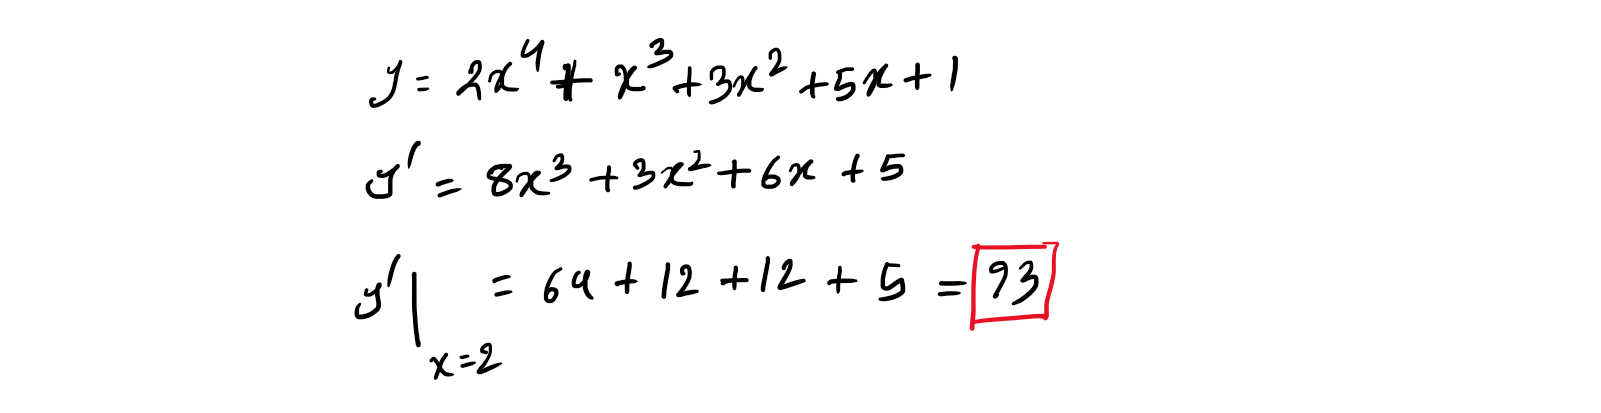 y = 2x⁴ + x³ + 3x² + 5x + 1
y′ = 8x³ + 3x² + 6x + 5
y′|ₓ₌₂ = 64 + 12 + 12 + 5 = 93